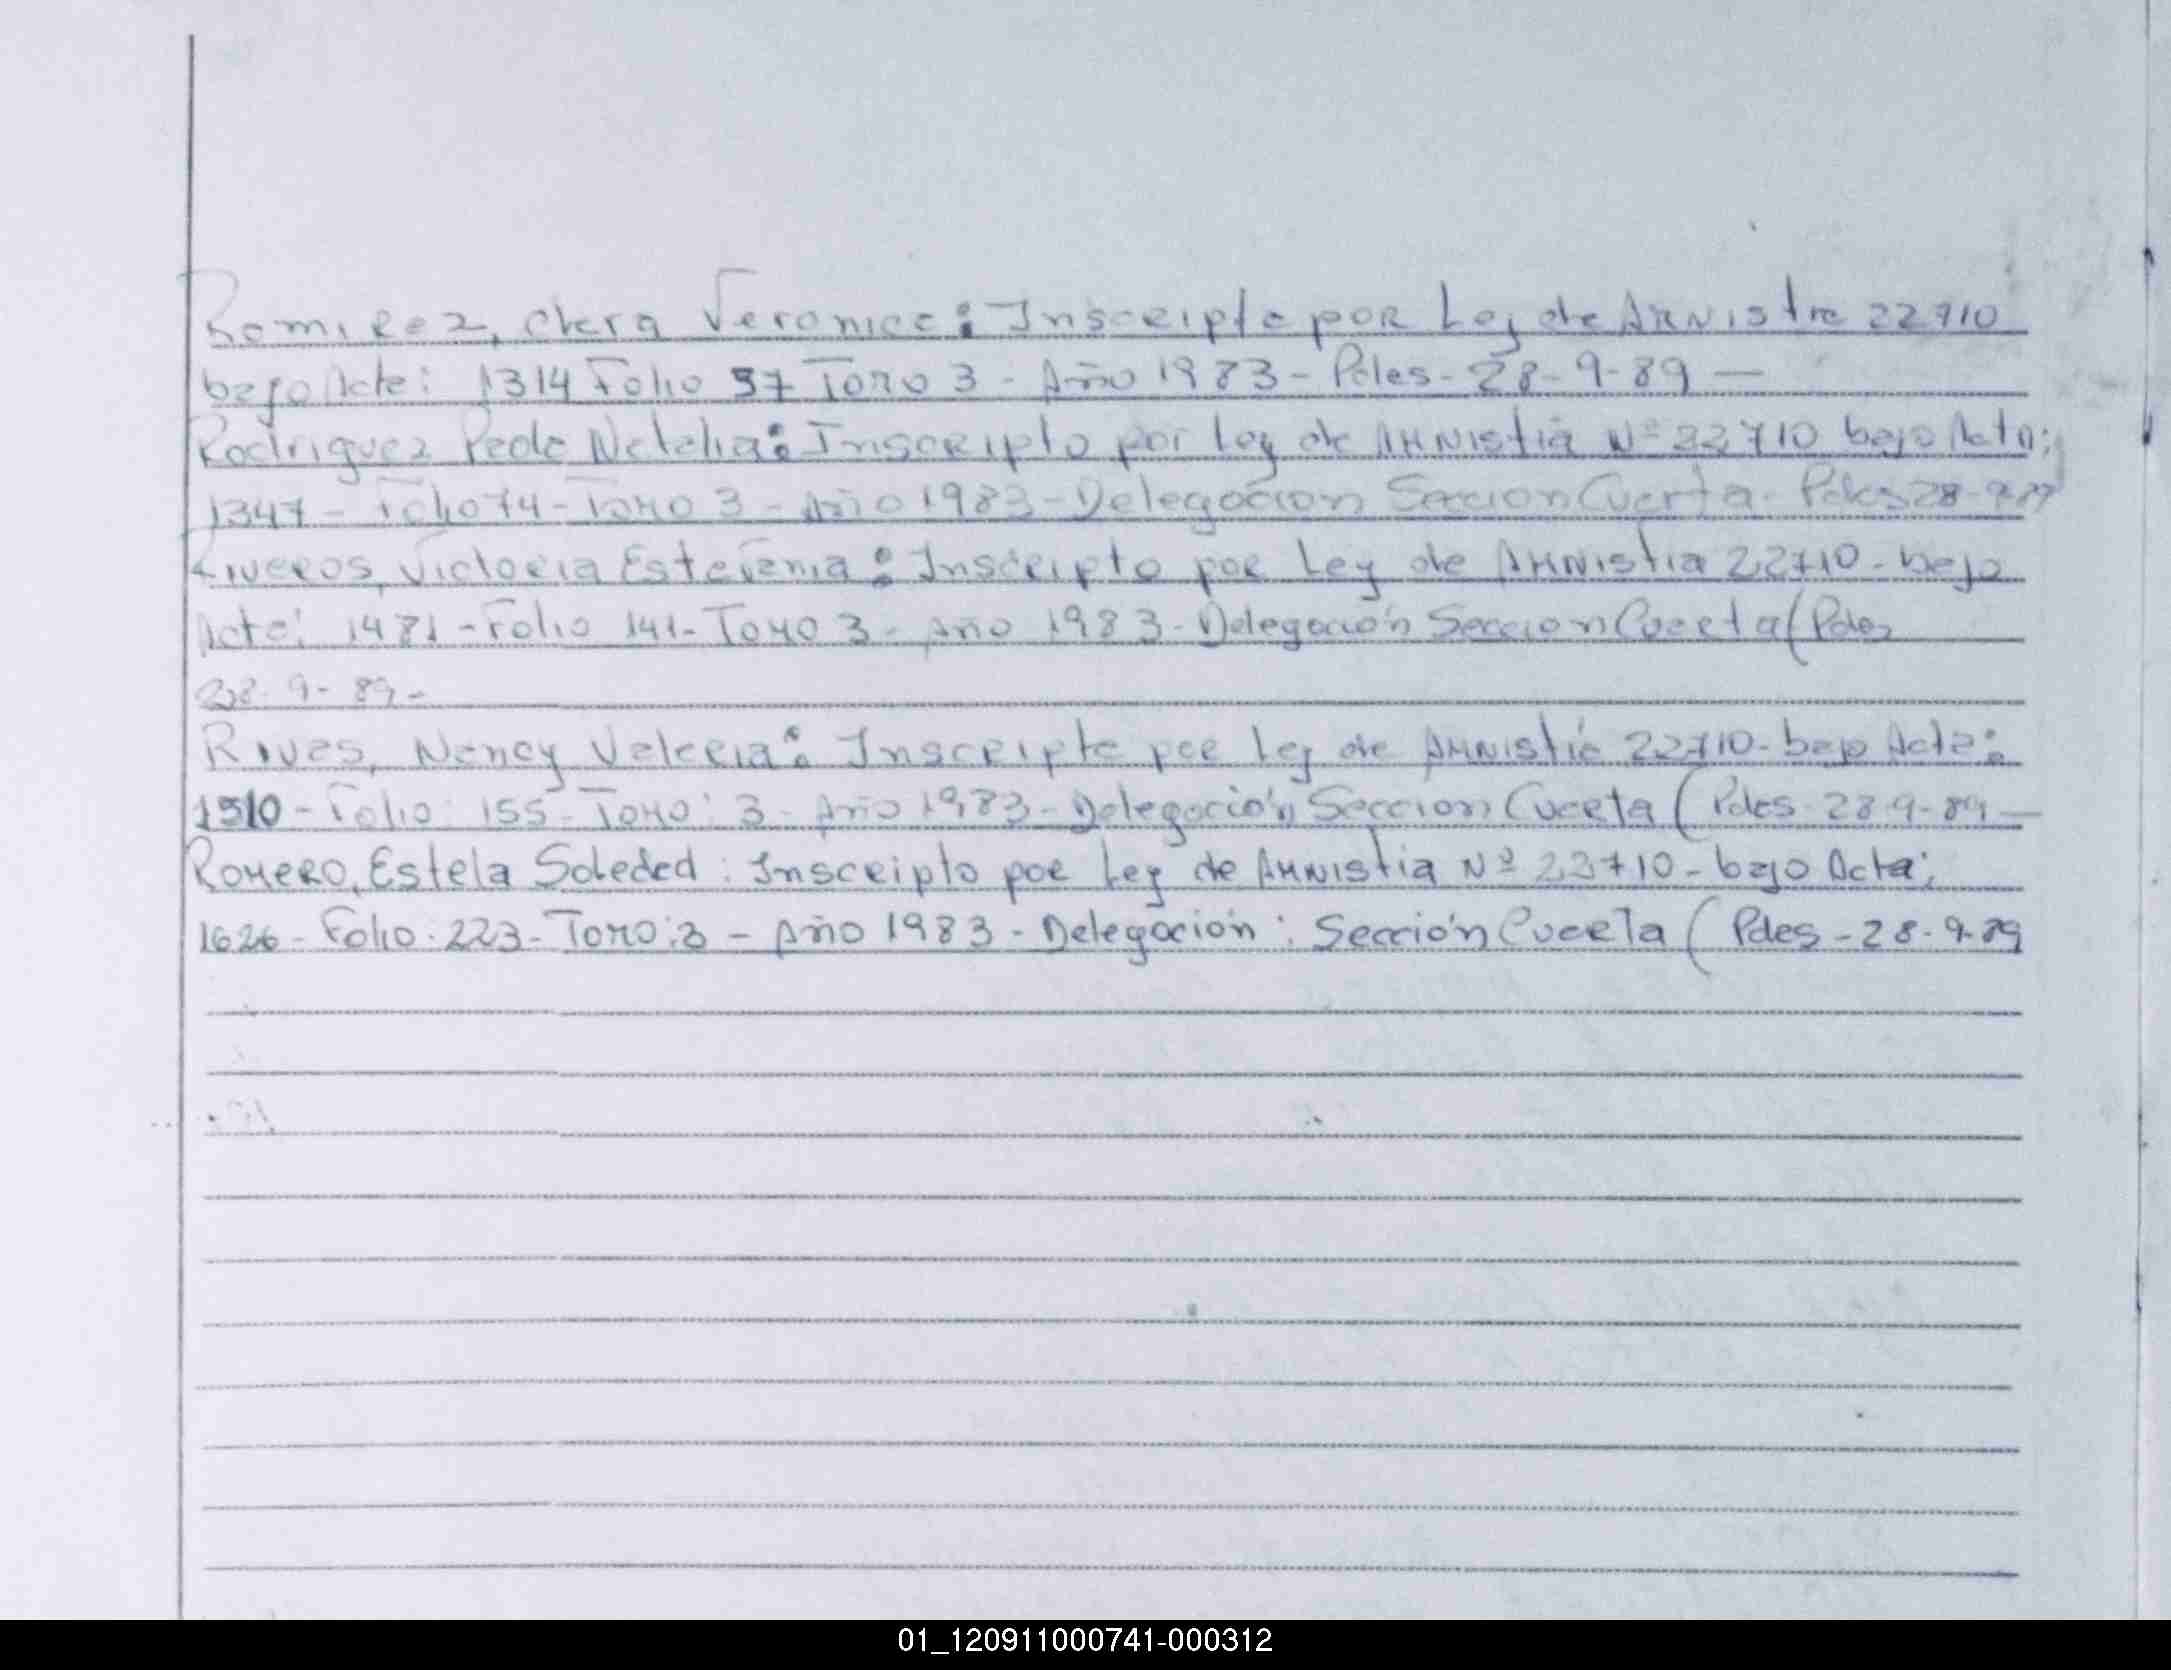 Ramirez, Clara Veronica: Inscripta por Ley de Amnistia 22710
bajo Acta: 1314 Folio 57 Tomo 3 - Año 1983 - Pdas - 28-9-89 —
Rodriguez Natalia: Inscripta por Ley de Amnistia Nº 22710 bajo Acta:
1347 - Folio 74 - Tomo 3 - Año 1983 - Delegación Sección Cuarta - Pdas 28-9-89
Riveros, Victoria Estefania: Inscripta por Ley de Amnistia 22710 - bajo
Acta: 1481 - Folio 141 - Tomo 3 - Año 1983 - Delegación Sección Cuarta (Pdas
28-9-89-
Rivas, Nancy Valeria: Inscripta por Ley de Amnistia 22710 - bajo Acta:
1510 - Folio: 155 - Tomo: 3 - Año 1983 - Delegación Sección Cuarta (Pdas - 28-9-89 —
Romero, Estela Soledad: Inscripta por Ley de Amnistia Nº 22710 - bajo Acta:
1626 - Folio: 223 - Tomo: 3 - Año 1983 - Delegación: Sección Cuarta (Pdas - 28-9-89
01_120911000741-000312